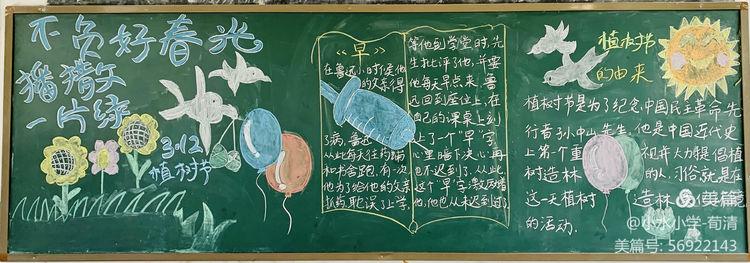 不负好春光
播撒
一片绿
3.12
植树节
《早》
在鲁迅小时候,他
的父亲得
了病,鲁迅
从此每天往药铺
和书舍跑,有一次
他为了给他的父亲
抓药,耽误了上学,
等他到学堂时,先
生批评了他,并要
他每天早点来,鲁
迅回到座位上,在
自己的课桌上刻
上了一个"早"字,
心里暗下决心,再
也不迟到了,从此
这个"早"字,激励着
他,他也从未迟到过了
植树节
的由来
植树节是为了纪念中国民主革命先
行者孙中山先生,他是中国近代史
上第一个重视并大力提倡植
树造林的人,习俗就是在
这一天植树造林
的活动.
美篇
@小水小学-荀清
美篇号: 56922143